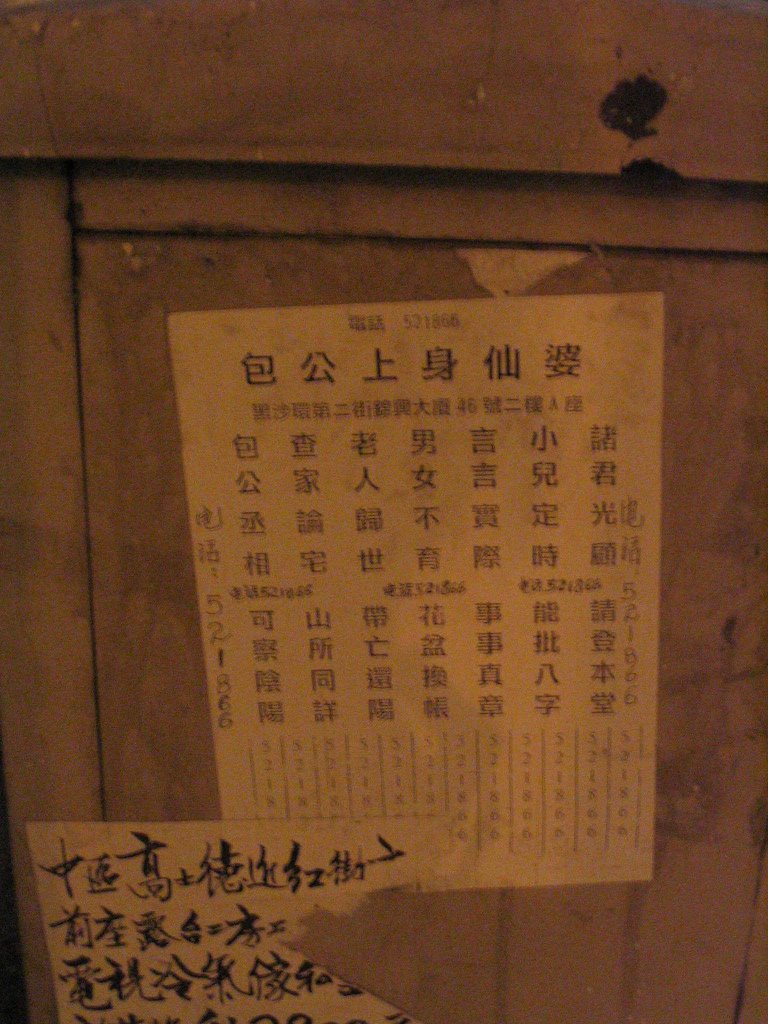 電話 521866
包公上身仙婆
黑沙環第二街錦興大廈 46 號二樓 A 座
电话:521866
包公丞相
查家論宅
老人歸世
男女不育
言言實際
小兒定時
諸君光顧
电话:521866
电話521866 电話521866 电話521866
可察陰陽
山所同詳
帶亡還陽
花盆換帳
事事真章
能批八字
請登本堂
5218
5218
5218
5218
5218
5218
521866
521866
521866
521866
521866
521866
中區高士德近紅街
前座露台
電視冷氣傢私